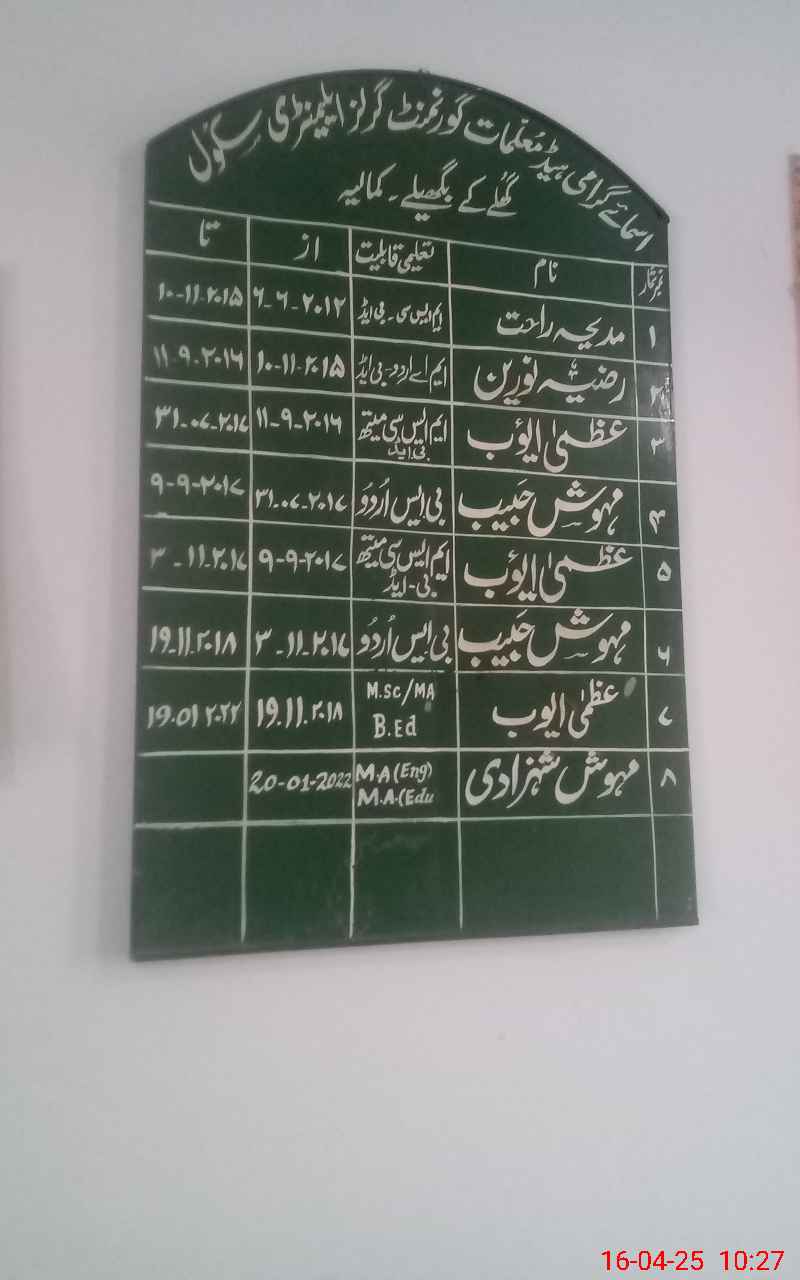 اسمائے گرامی ہیڈ معلمات گورنمنٹ گرلز ایلیمنٹری سکول
گھلے کے بگھیلے۔ کمالیہ
نمبر شمار نام تعلیمی قابلیت از تا
۱ مدیحہ راحت ایم ایس سی۔ بی ایڈ ۶-۶-۲۰۱۲ ۱۰-۱۱-۲۰۱۵
۲ رضیہ نورین ایم اے اردو-بی ایڈ ۱۰-۱۱-۲۰۱۵ ۱۱-۹-۲۰۱۶
۳ عظمیٰ ایوب ایم ایس سی میتھ بی ایڈ ۱۱-۹-۲۰۱۶ ۳۱-۰۷-۲۰۱۷
۴ مہوش حبیب بی ایس اُردُو ۳۱-۰۷-۲۰۱۷ ۹-۹-۲۰۱۷
۵ عظمیٰ ایوب ایم ایس سی میتھ بی-ایڈ ۹-۹-۲۰۱۷ ۳-۱۱-۲۰۱۷
۶ مہوش حبیب بی ایس اُردُو ۳-۱۱-۲۰۱۷ ۱۹-۱۱-۲۰۱۸
۷ عظمیٰ ایوب M.Sc/MA B.Ed ۱۹.۱۱.۲۰۱۸ ۱۹.۰۱.۲۰۲۲
۸ مہوش شہزادی M.A(Eng) M.A.(Edu 20-01-2022
16-04-25 10:27